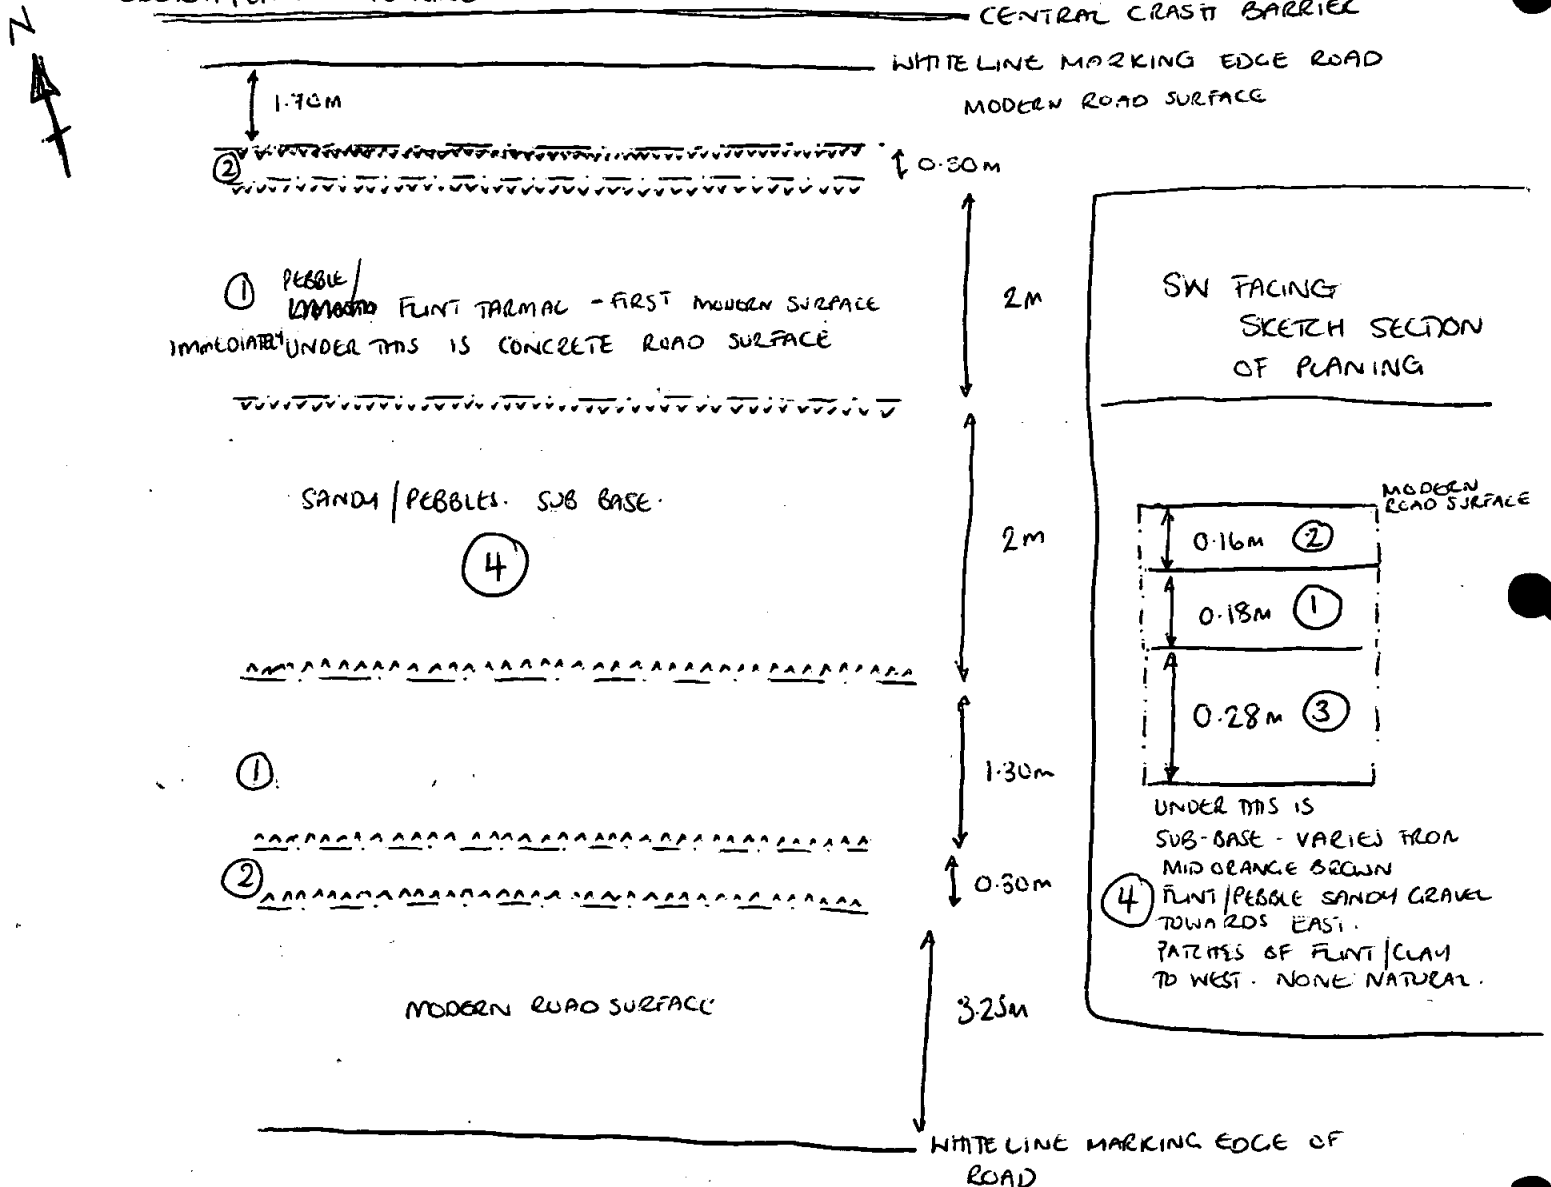 N
CENTRAL CRASH BARRIER
WHITE LINE MARKING EDGE ROAD
1.70M
MODERN ROAD SURFACE
2
0.30M
1 PEBBLE/
FLINT TARMAC - FIRST MODERN SURFACE
IMMEDIATELY UNDER THIS IS CONCRETE ROAD SURFACE
2M
SANDY/PEBBLES. SUB BASE.
4
2M
1
1.30M
2
0.30M
MODERN ROAD SURFACE
3.25M
WHITE LINE MARKING EDGE OF
ROAD
SW FACING
SKETCH SECTION
OF PLANING
MODERN
ROAD SURFACE
0.16M 2
0.18M 1
0.28M 3
UNDER THIS IS
SUB-BASE - VARIES FROM
MID ORANGE BROWN
4 FLINT/PEBBLE SANDY GRAVEL
TOWARDS EAST.
PATCHES OF FLINT/CLAY
TO WEST. NONE NATURAL.